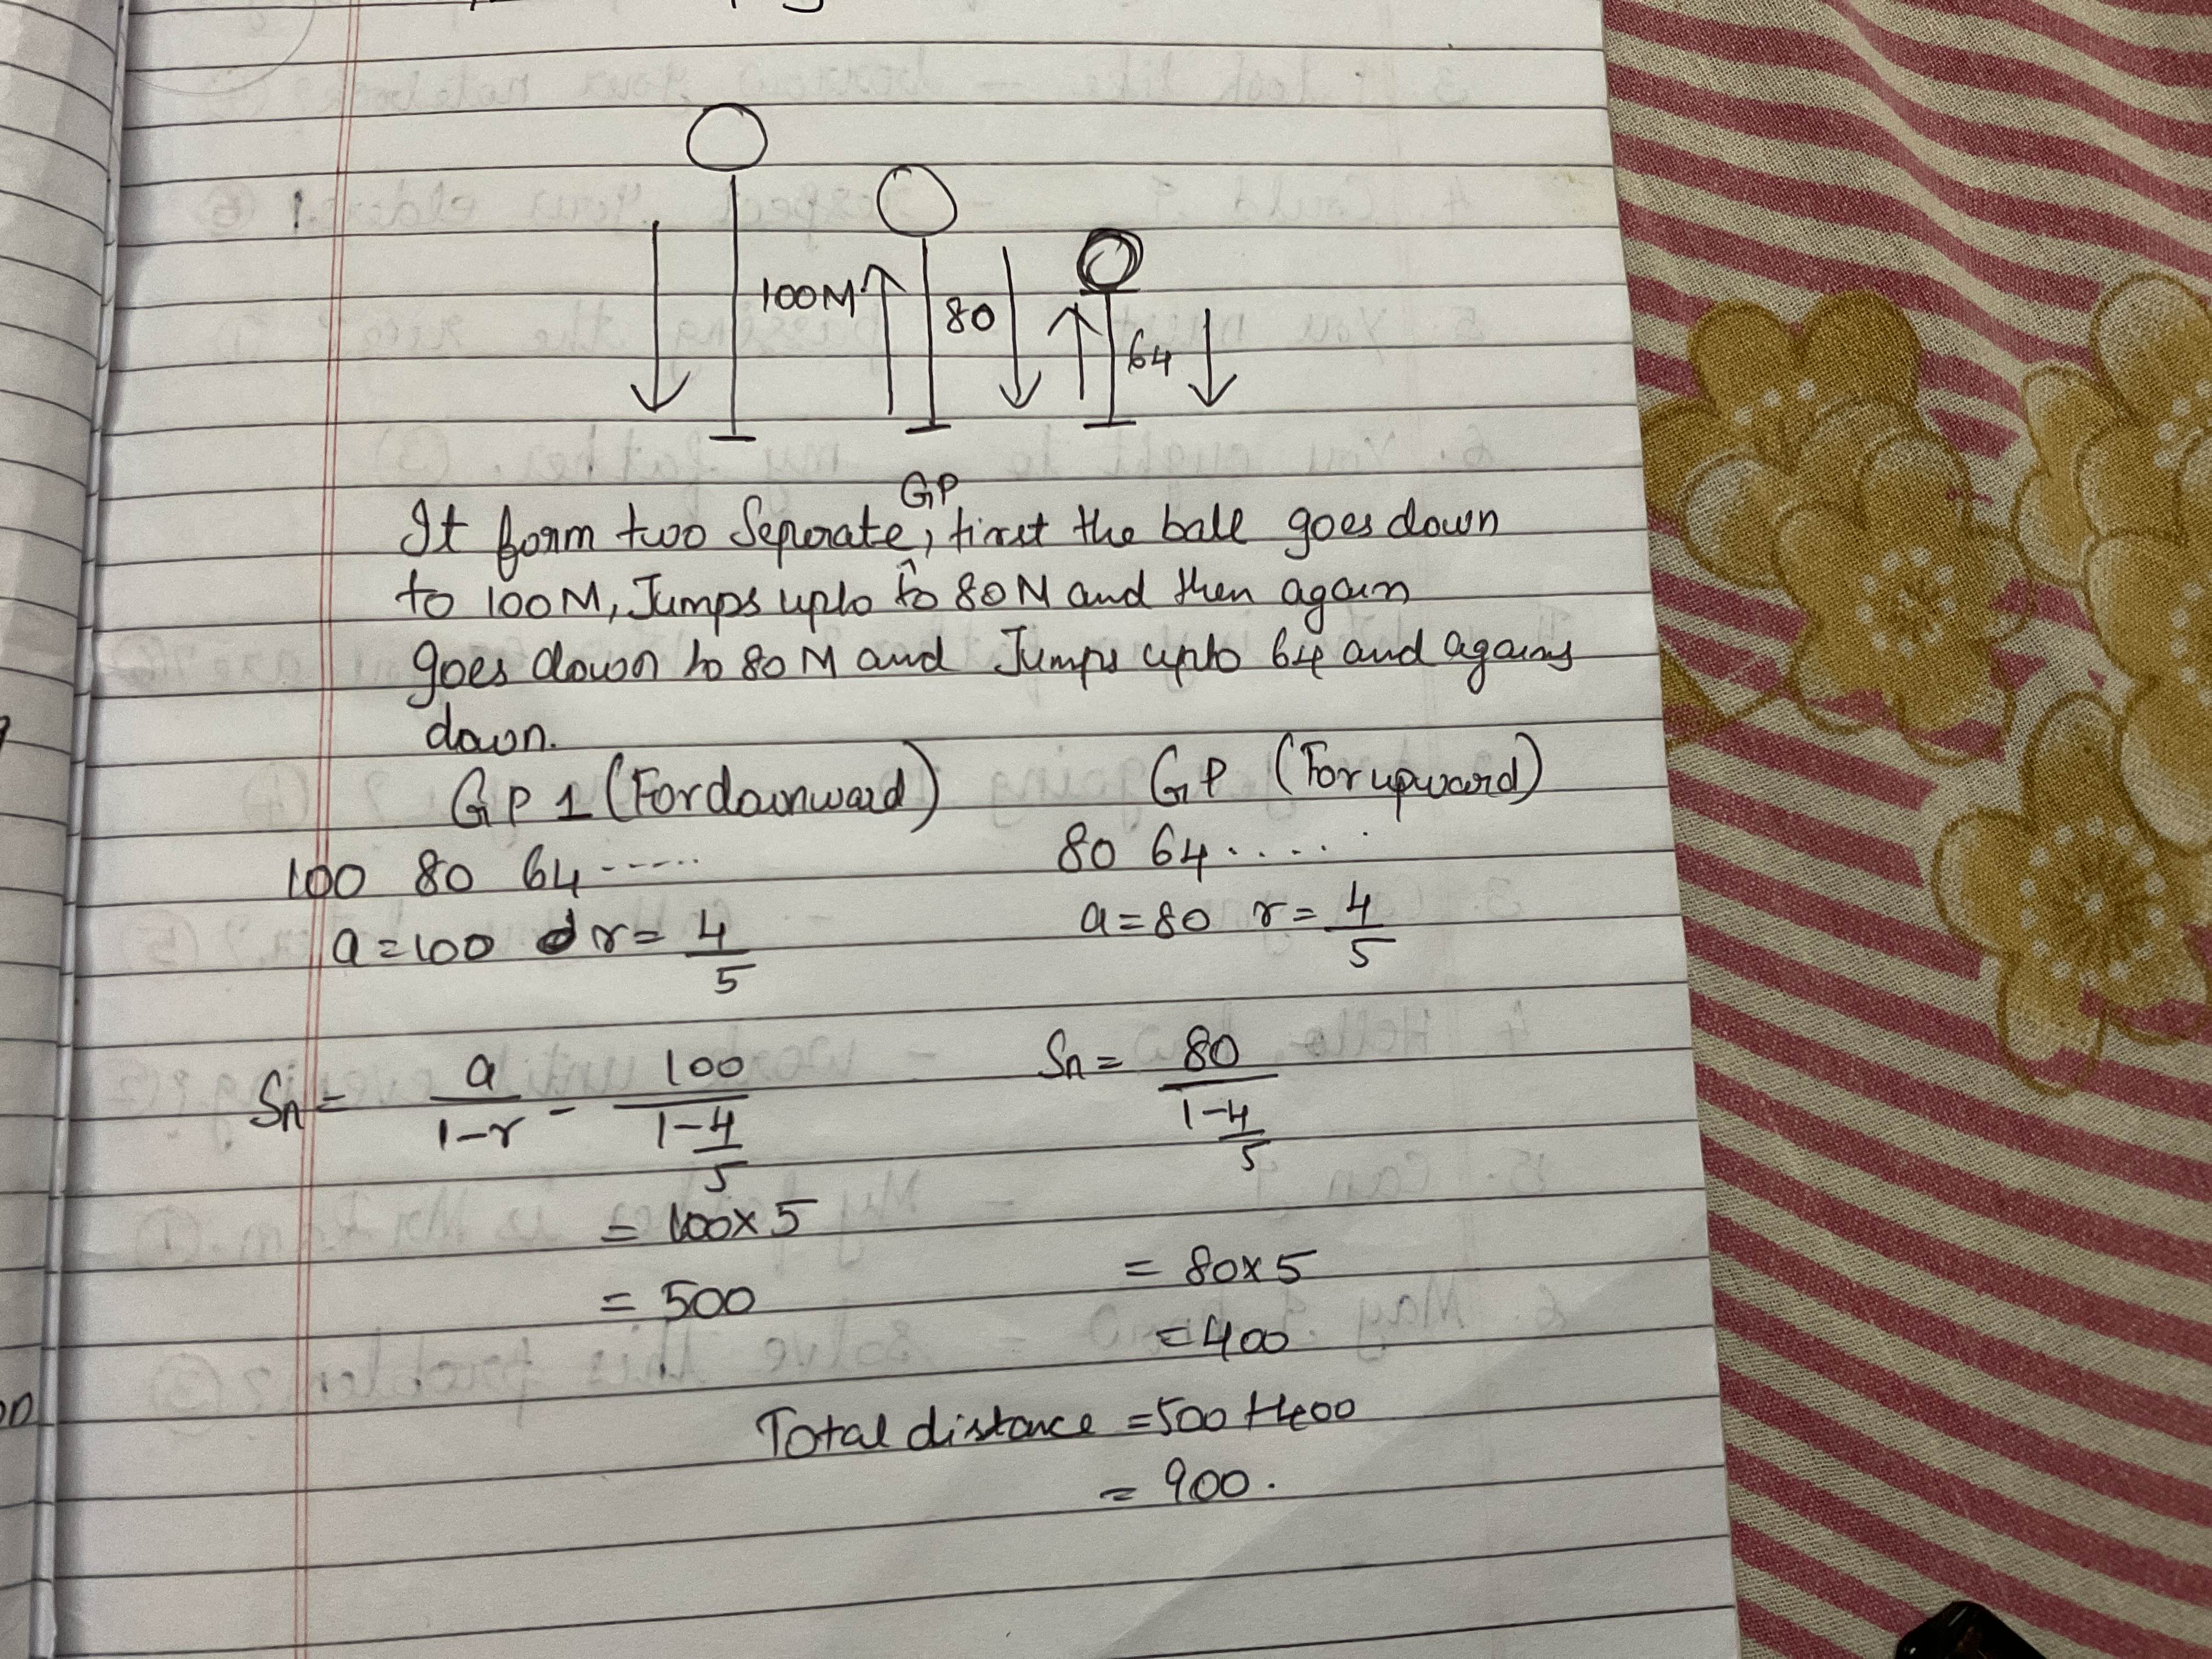 100M
80
64
GP
It form two Seperate, first the ball goes down
to 100M, Jumps upto to 80M and then again
goes down to 80M and Jumps upto 64 and agains
down.
GP 1 (For downward) GP (For upward)
100 80 64 ------ 80 64 .....
a=100 r= 4/5 a=80 r= 4/5
Sn= a/1-r - 100/1-4/5 Sn= 80/1-4/5
= 100x5
= 80x5
= 500
=400
Total distance =500+400
= 900.